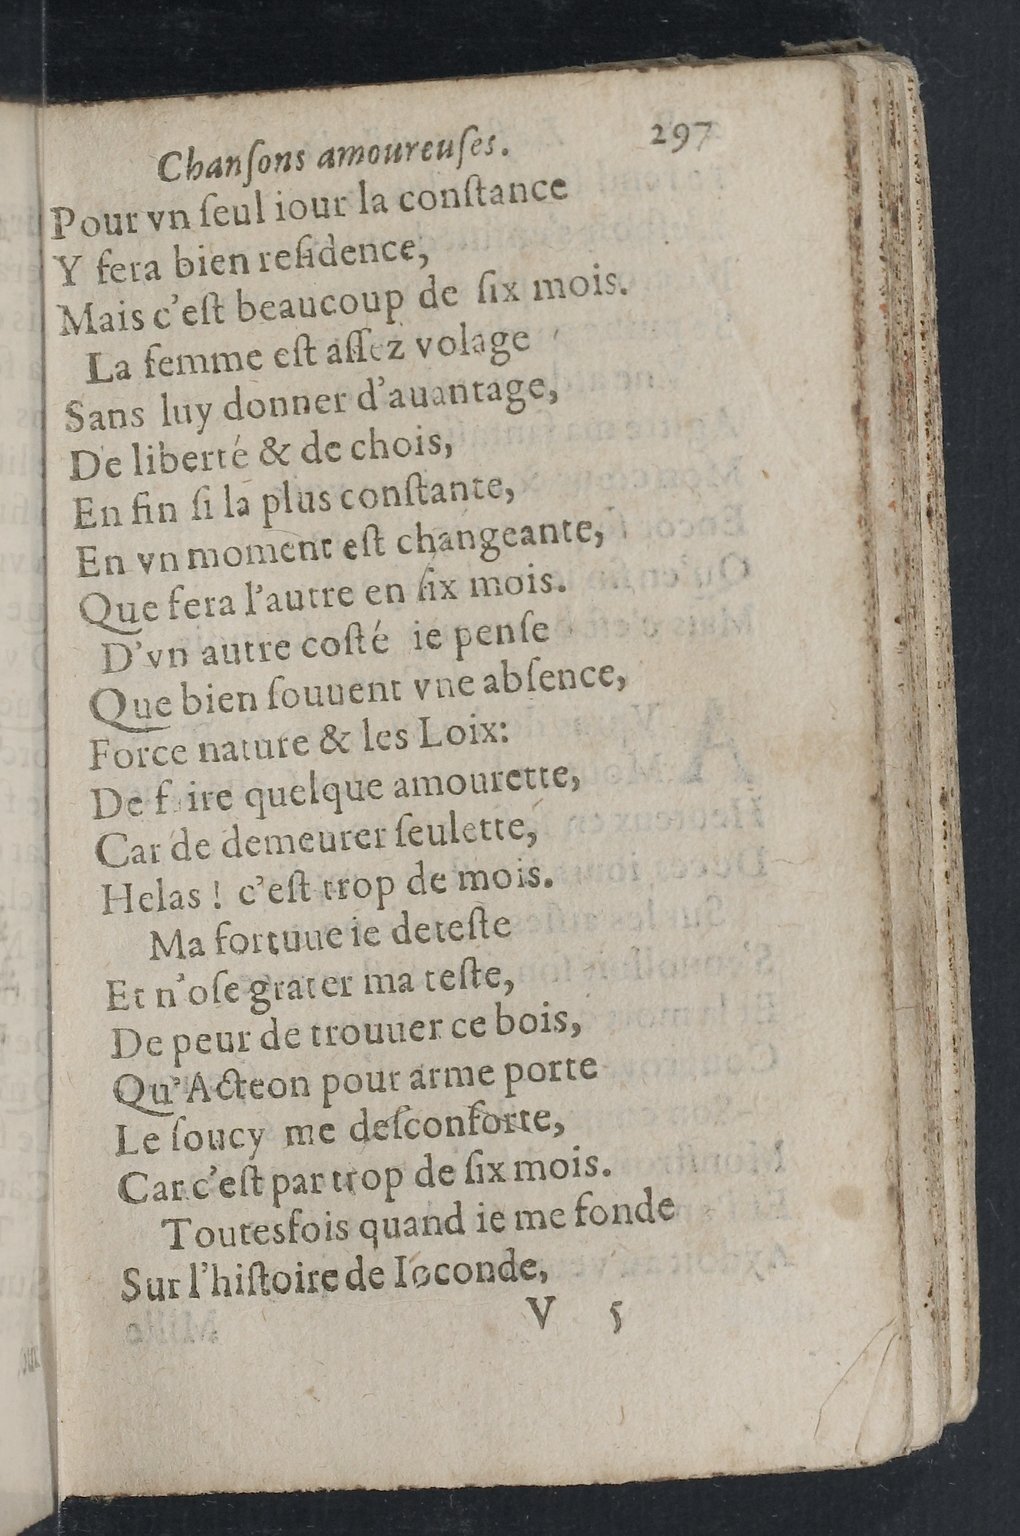 Chanſons amoureuſes. 297
Pour vn ſeul iour la conſtance
Y fera bien reſidence,
Mais c'eſt beaucoup de ſix mois.
La femme eſt aſſez volage
Sans luy donner d'auantage,
De liberté & de chois,
En fin ſi la plus conſtante,
En vn moment eſt changeante,
Que fera l'autre en ſix mois.
D'vn autre coſté ie penſe
Que bien ſouuent vne abſence,
Force nature & les Loix:
De faire quelque amourette,
Car de demeurer ſeulette,
Helas ! c'eſt trop de mois.
Ma fortuue ie deteſte
Et n'oſe grater ma teſte,
De peur de trouuer ce bois,
Qu'Acteon pour arme porte
Le ſoucy me deſconforte,
Car c'eſt par trop de ſix mois.
Toutesfois quand ie me fonde
Sur l'hiſtoire de Ioconde,
V 5